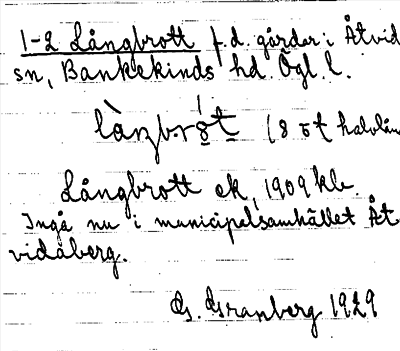 1-2 Långbrott f.d. gårdar i Åtvid
sn, Bankekinds hd. Ögl. l.
(8 öt halvlån
Långbrott ek, 1909 kb.
Ingå nu i municipalsamhället Åt-
vidaberg.
G. Granberg 1929